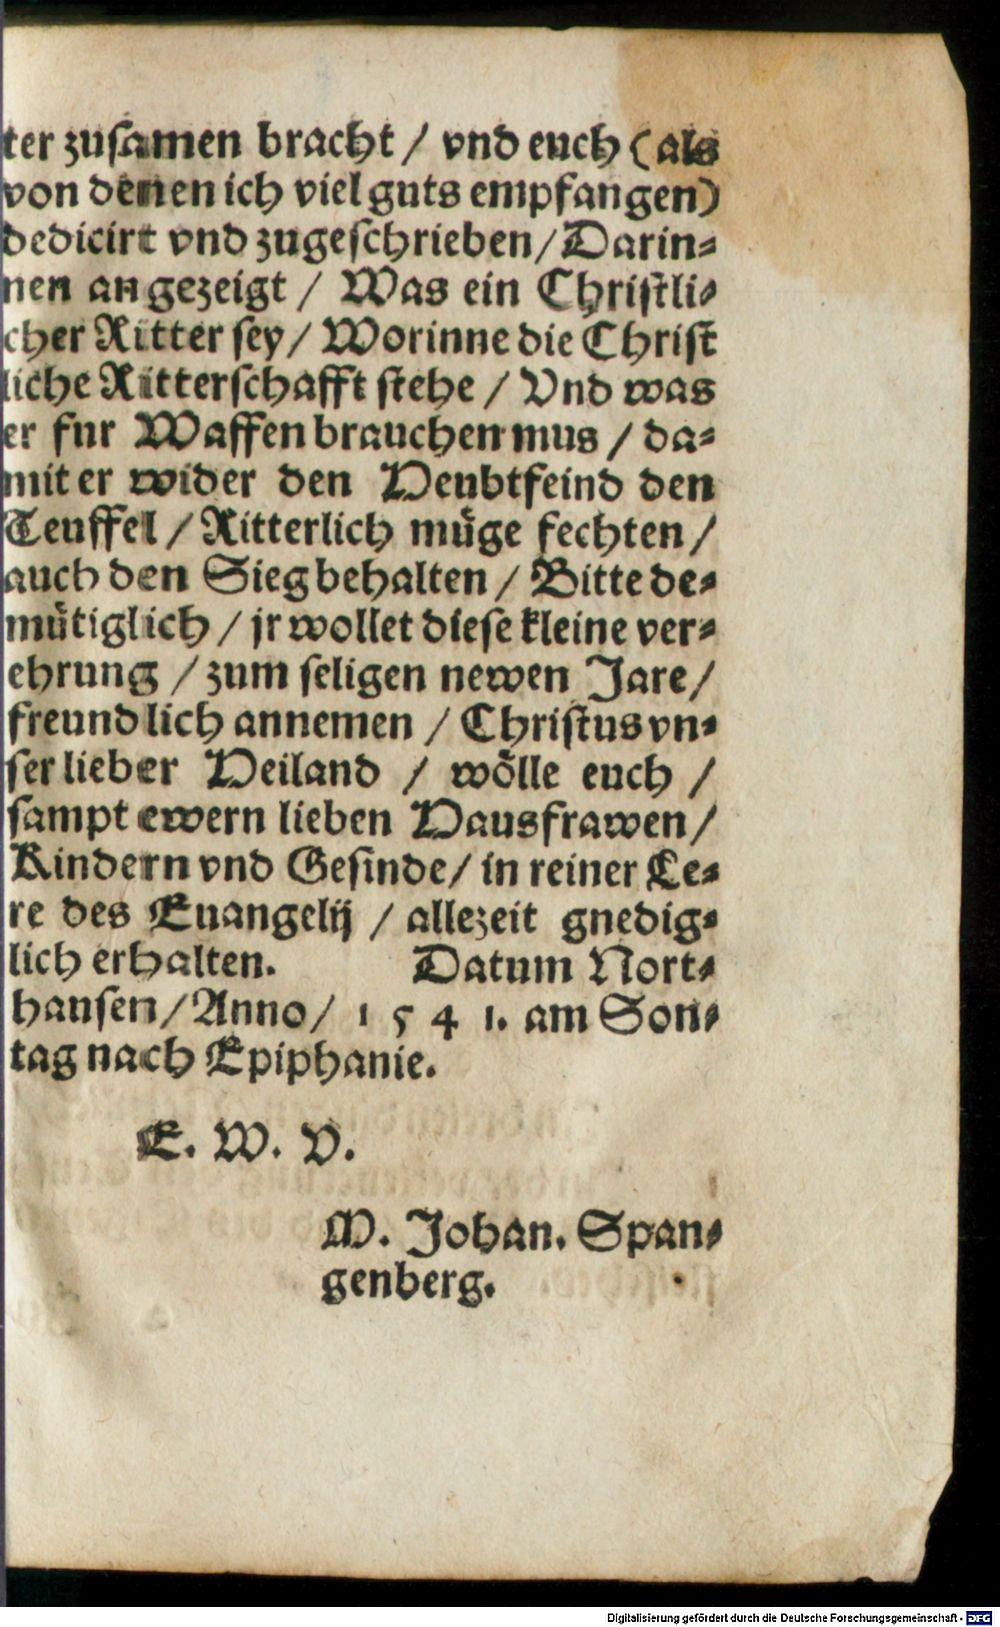 ter zusamen bracht / vnd euch (als
von denen ich viel guts empfangen)
dedicirt vnd zugeschrieben / Darin⸗
nen angezeigt / Was ein Christli⸗
cher Ritter sey / Worinne die Christ
liche Ritterschafft stehe / Vnd was
er fur Waffen brauchen mus / da⸗
mit er wider den Heubtfeind den
Teuffel / Ritterlich müge fechten /
auch den Sieg behalten / Bitte de⸗
mütiglich / jr wollet diese kleine ver⸗
ehrung / zum seligen newen Jare /
freundlich annemen / Christus vn⸗
ser lieber Heiland / wölle euch /
sampt ewern lieben Hausfrawen /
Kindern vnd Gesinde / in reiner Le⸗
re des Euangelij / allezeit gnedig⸗
lich erhalten. Datum Nort⸗
hausen / Anno / 1 5 4 1. am Son⸗
tag nach Epiphanie.
E. W. V.
M. Johan. Span⸗
genberg.
Digitalisierung gefördert durch die Deutsche Forschungsgemeinschaft - DFG